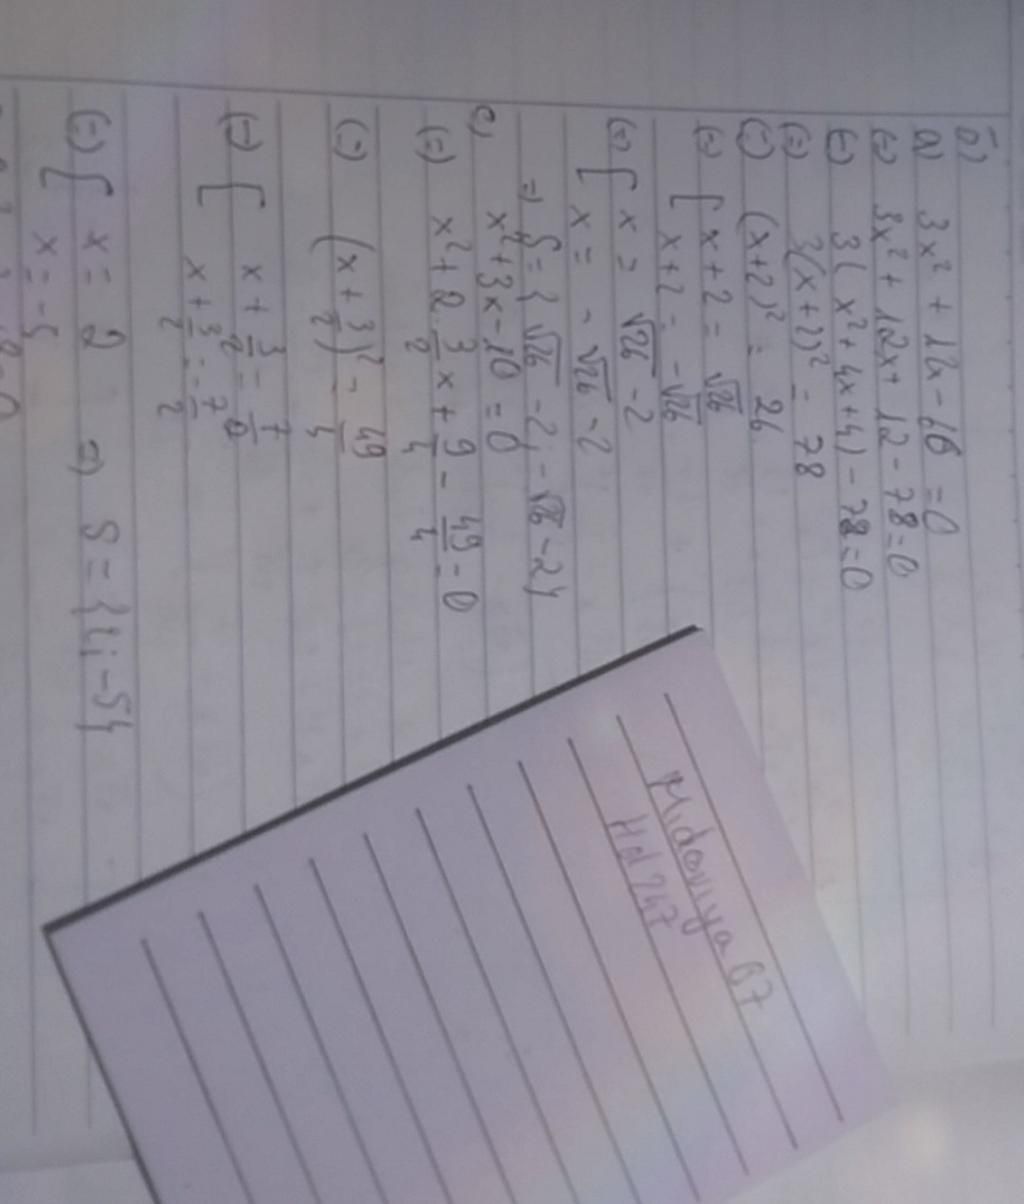 5)
a) 3x² + 12x - 66 = 0
(=) 3x² + 12x + 12 - 78 = 0
(=) 3(x² + 4x + 4) - 78 = 0
(=) 3(x+2)² = 78
(=) (x+2)² = 26
(=) [ x+2 = √26
x+2 = -√26
(=) [ x = √26 - 2
x = -√26 - 2
=) S = { √26 - 2; -√26 - 2}
c) x² + 3x - 10 = 0
(=) x² + 2 3/2 x + 9/4 - 49/4 = 0
(=) (x + 3/2)² = 49/4
(=) [ x + 3/2 = 7/2
x + 3/2 = -7/2
(=) [ x = 2 =) S = {2; -5}
x = -5
Midoriya B7
Hd 247